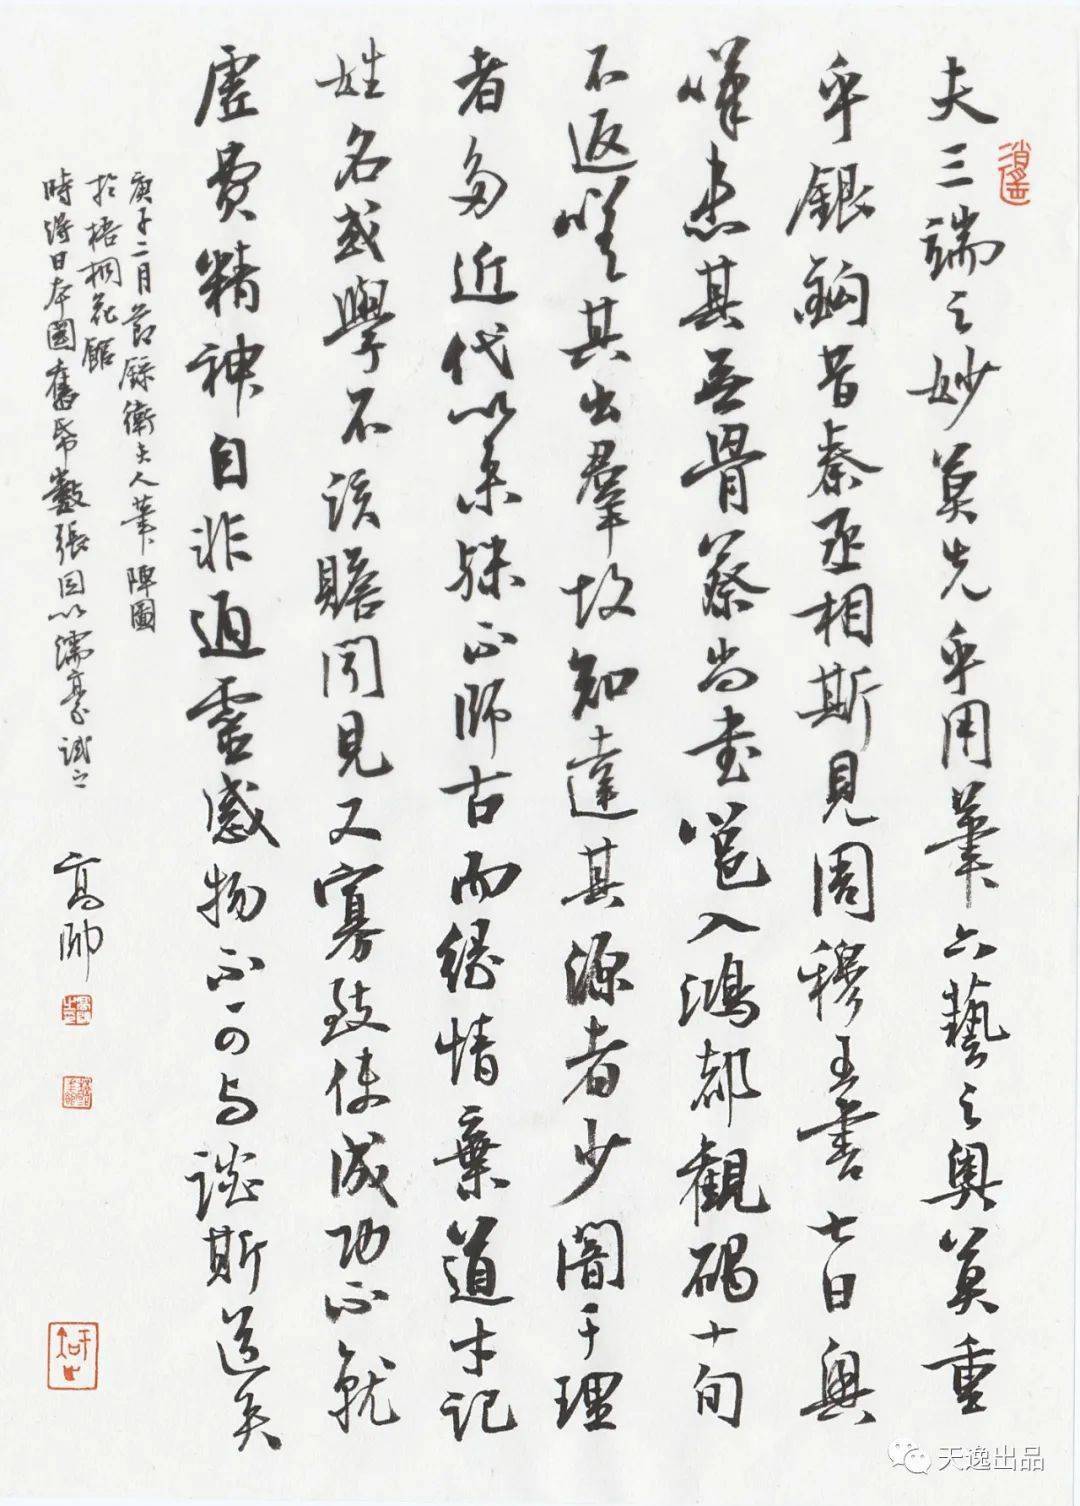 夫三端之妙莫先乎用筆六藝之奧莫重
乎銀鉤昔秦丞相斯見周穆王書七日興
嘆患其無骨蔡尚書邕入鴻都觀碣十旬
不返嗟其出羣故知達其源者少闇于理
者多近代以來殊不師古而緣情棄道才記
姓名或學不該贍聞見又寡致使成功不就
虛費精神自非通靈感物不可與談斯道矣
庚子二月節錄衛夫人筆陣圖
於梧桐花館
時得日本國舊紙數張因以濡毫試之
高帥
逍遙
天逸出品